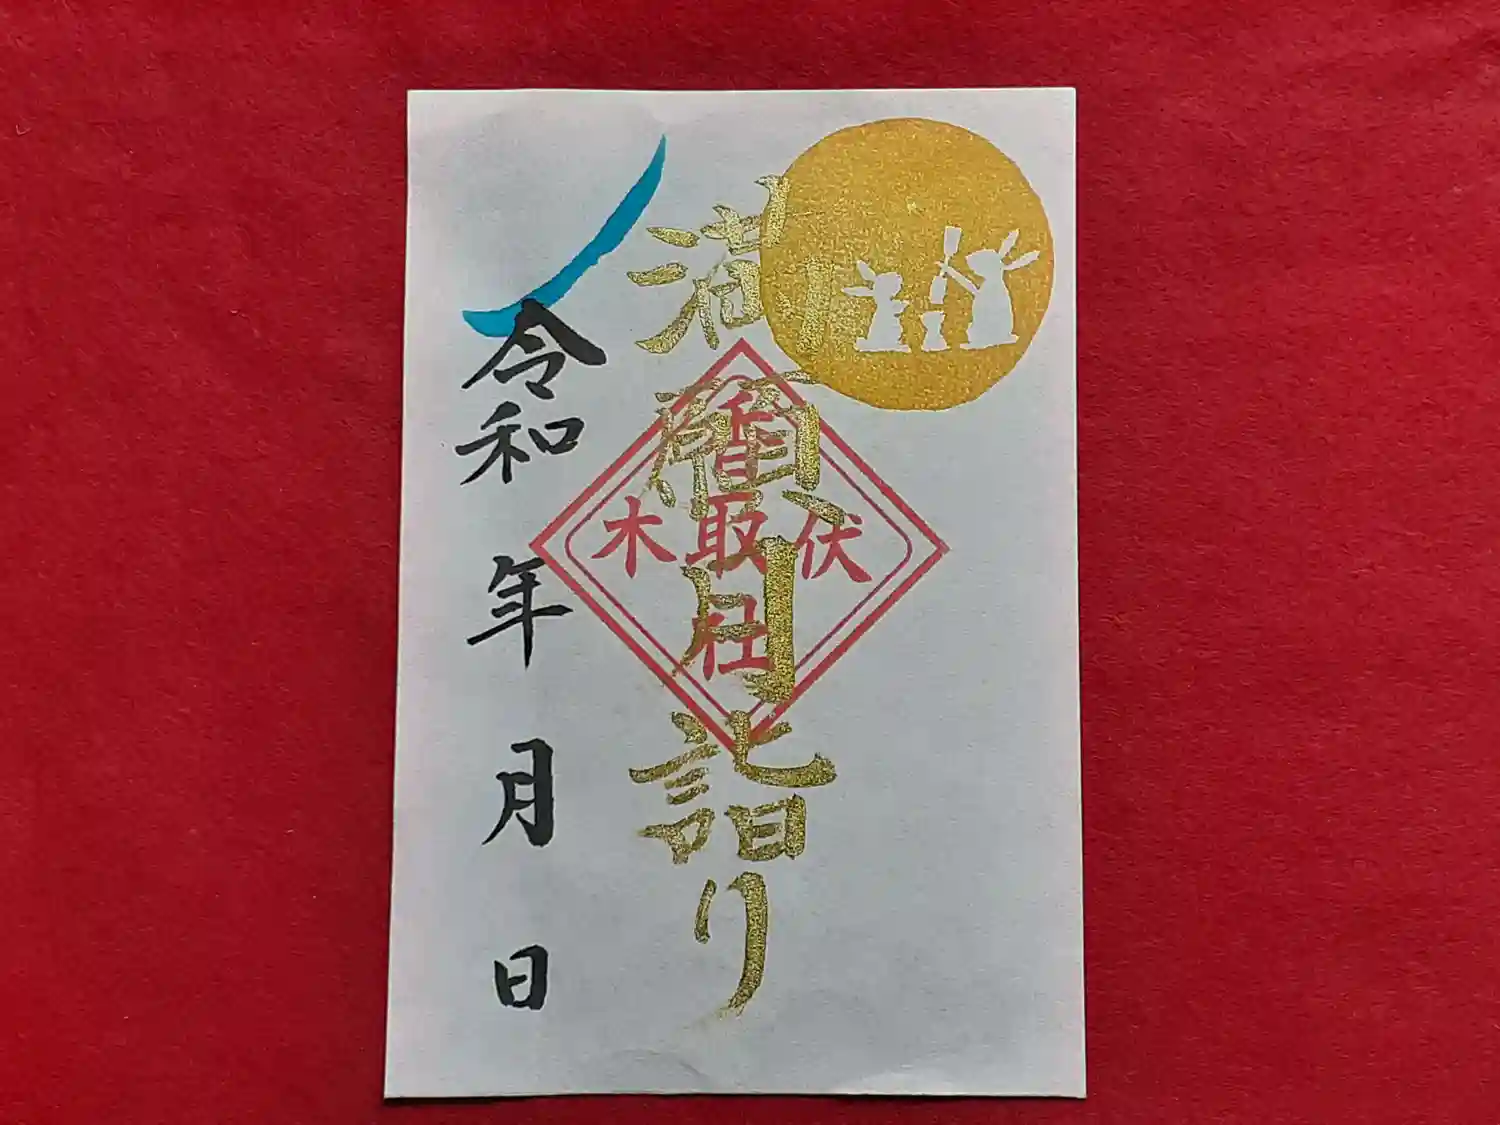 満願月詣り
伏木
香取社
令和 年 月 日